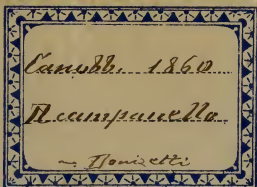 Canobb. 1860
Il campanello
Donizetti